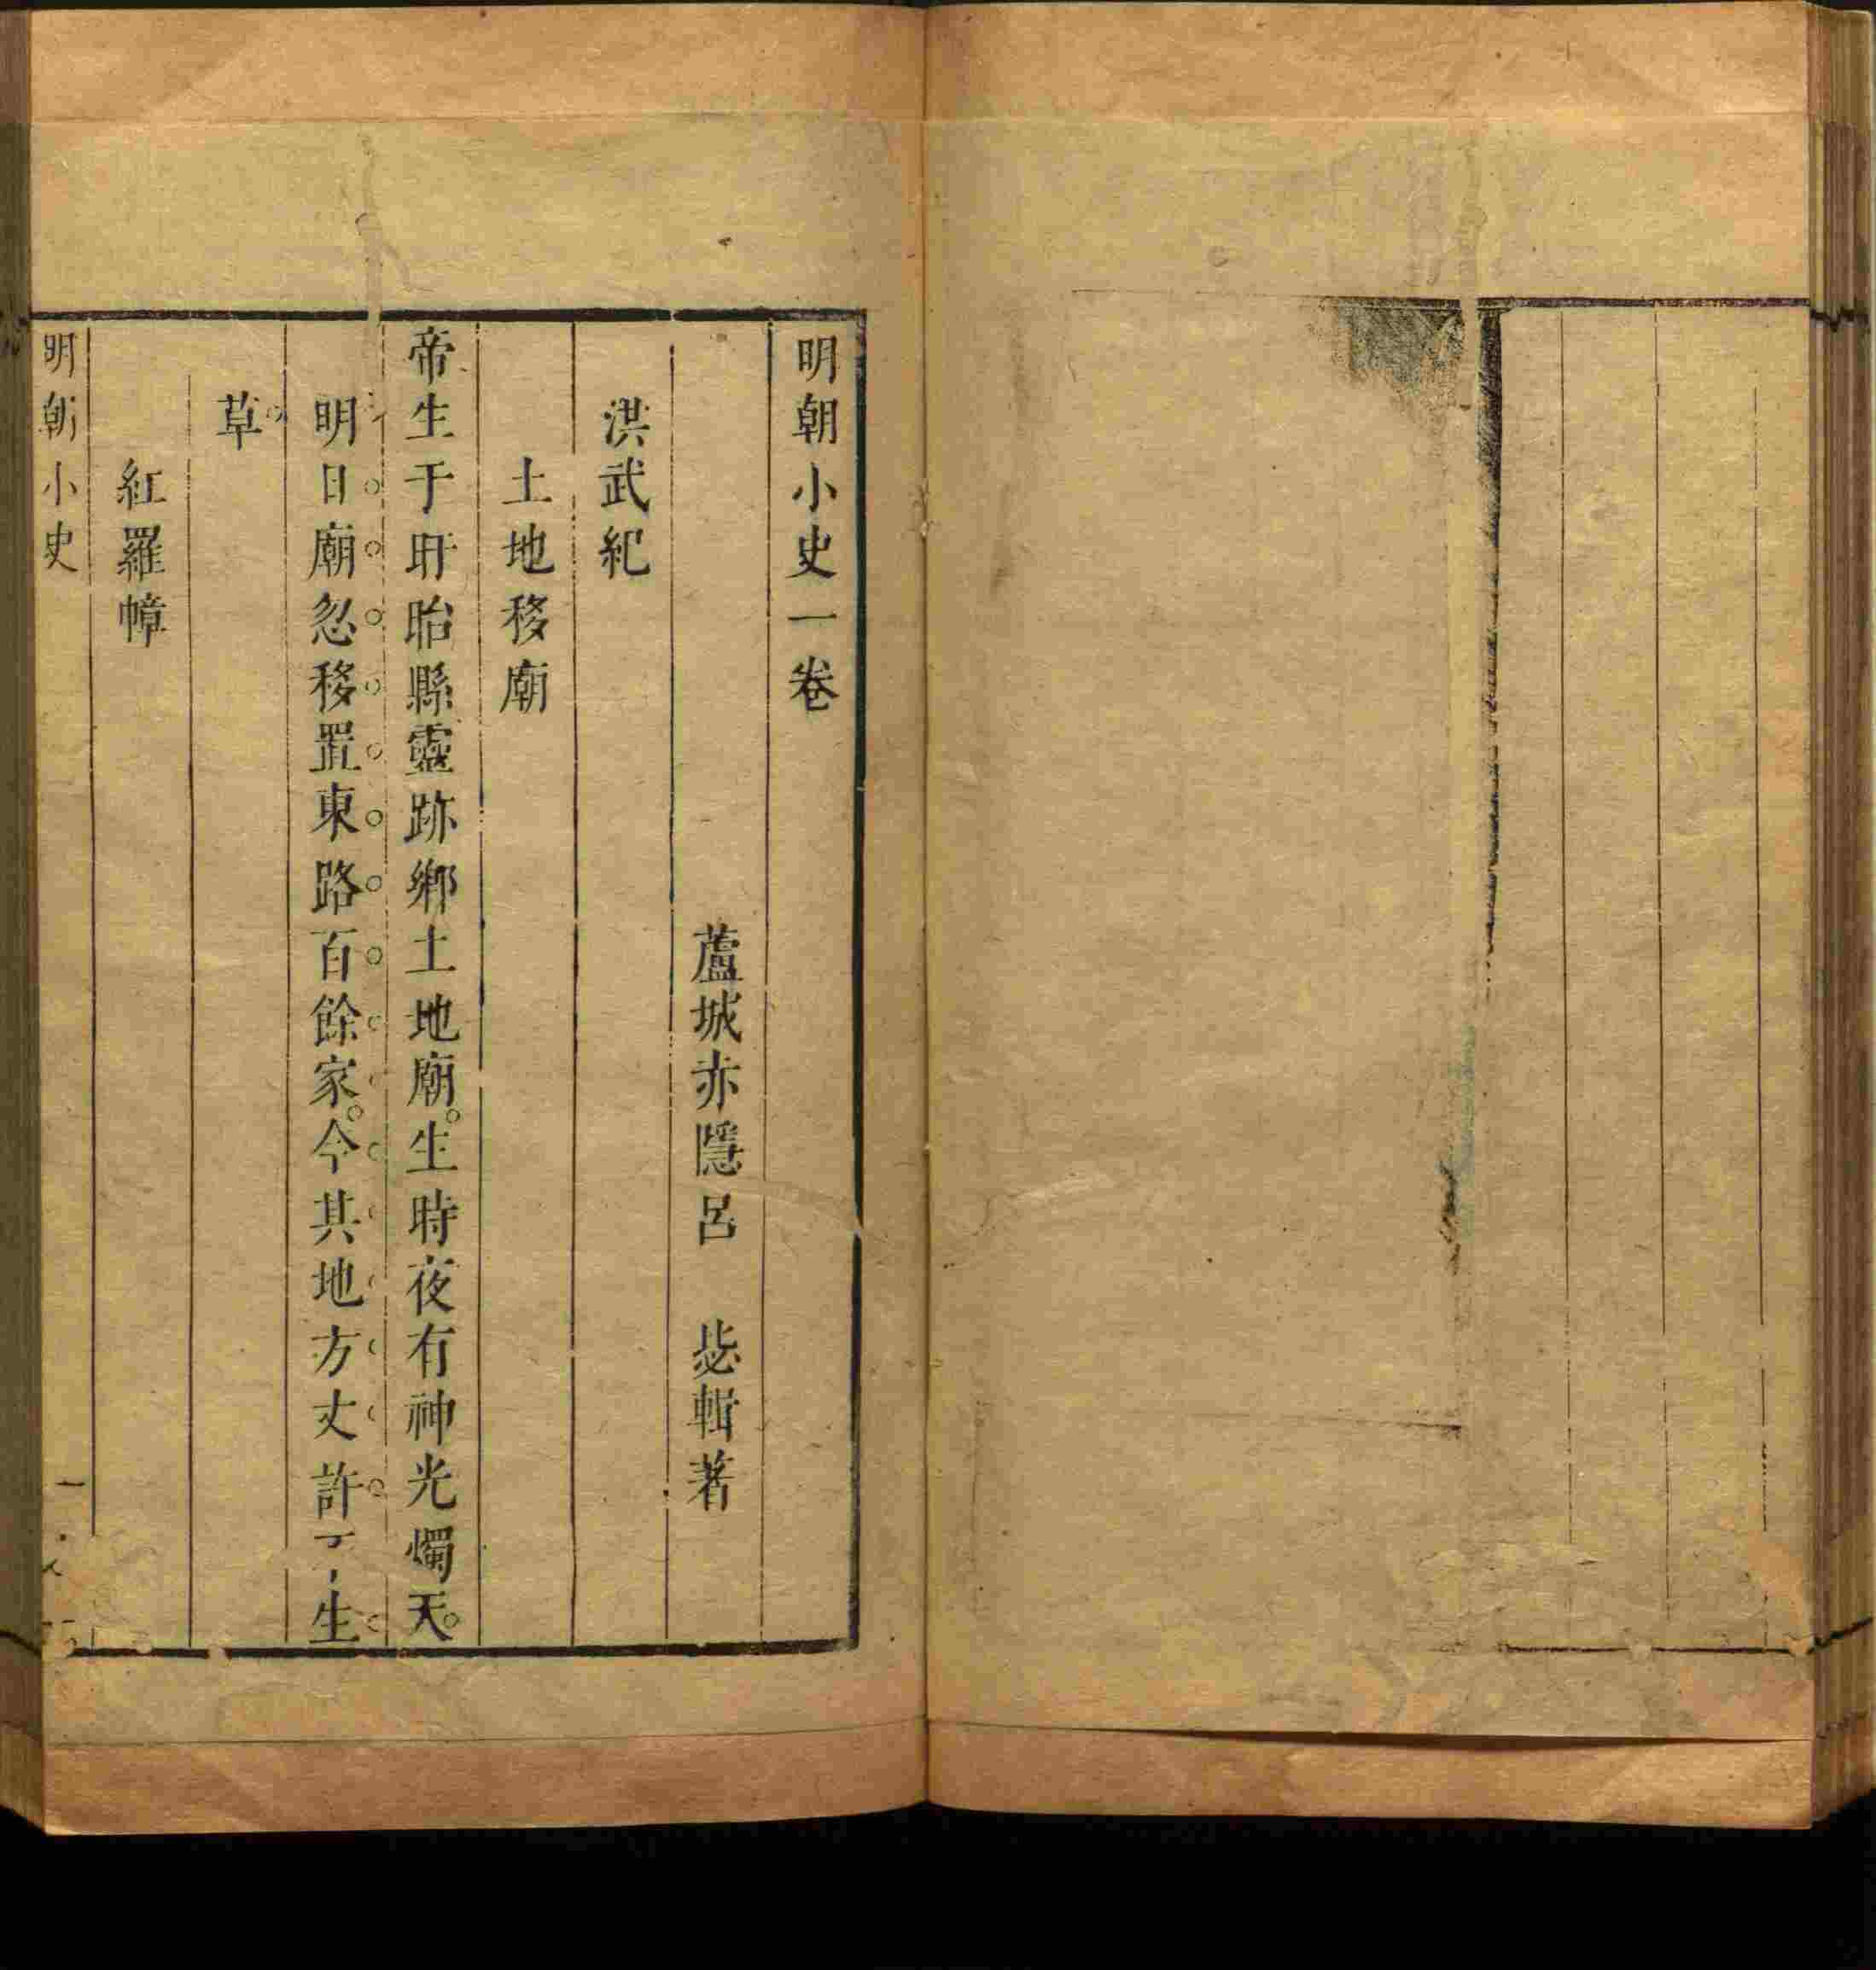 明朝小史一卷
蘆城赤隱呂 毖輯著
洪武紀
土地移廟
帝生于盱眙縣靈跡鄉土地廟。生時夜有神光燭天。
明日廟忽移置東路百餘家。今其地方丈許 生
草
紅羅幛
明朝小史 一